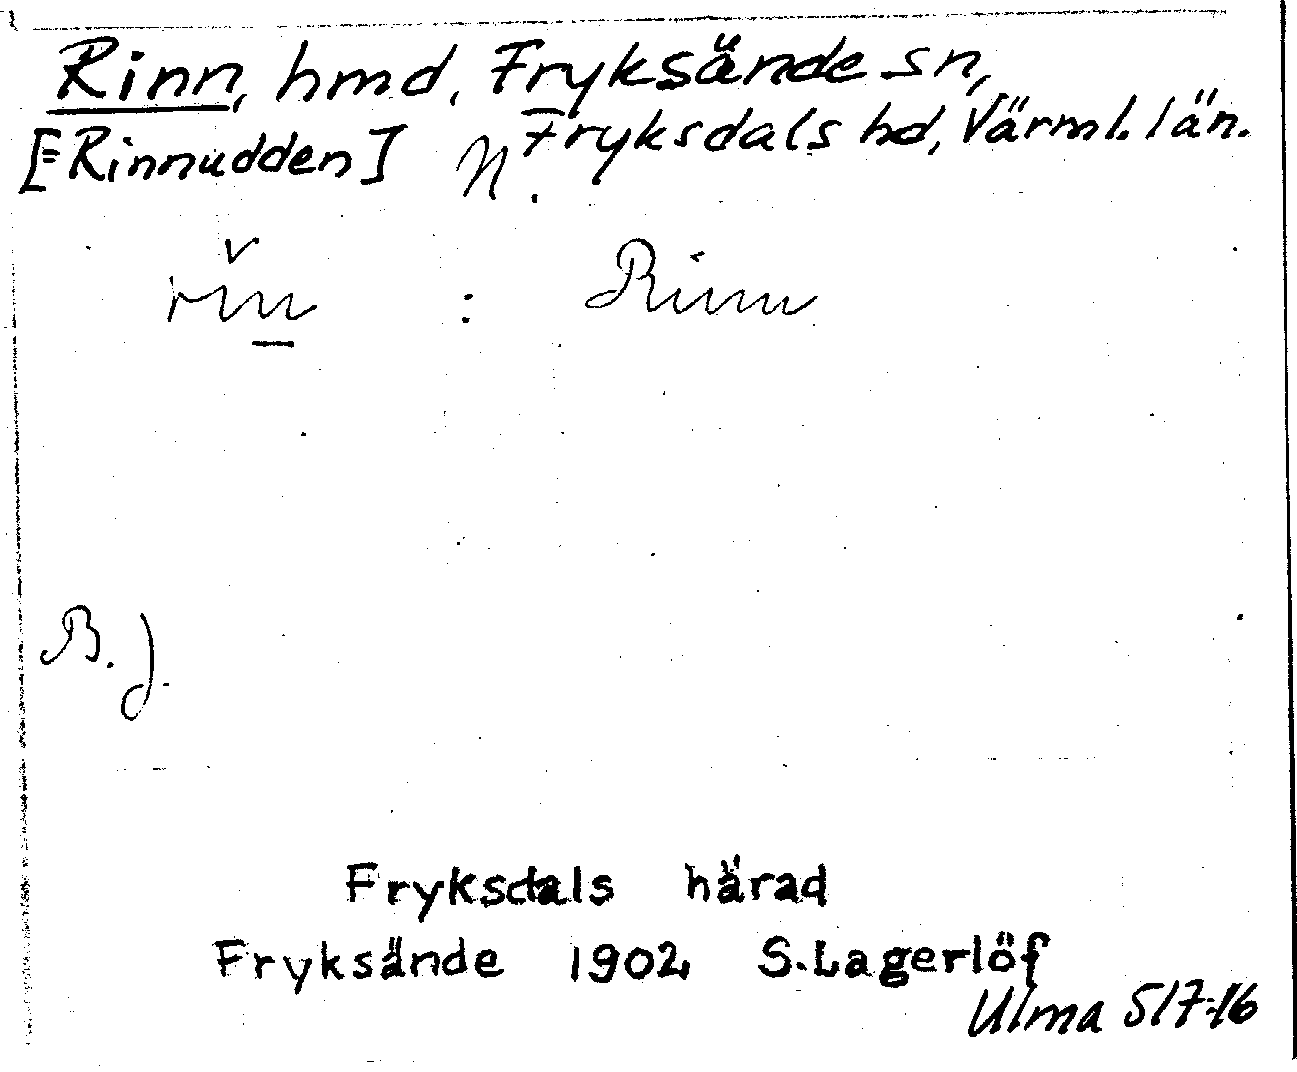 Rinn, hmd, Fryksände sn,
[= Rinnudden] N. Fryksdals hd, Värml. län.
rin : Rinn
B. J.
Fryksdals härad
Fryksände 1902 S. Lagerlöf
Ulma 517:16